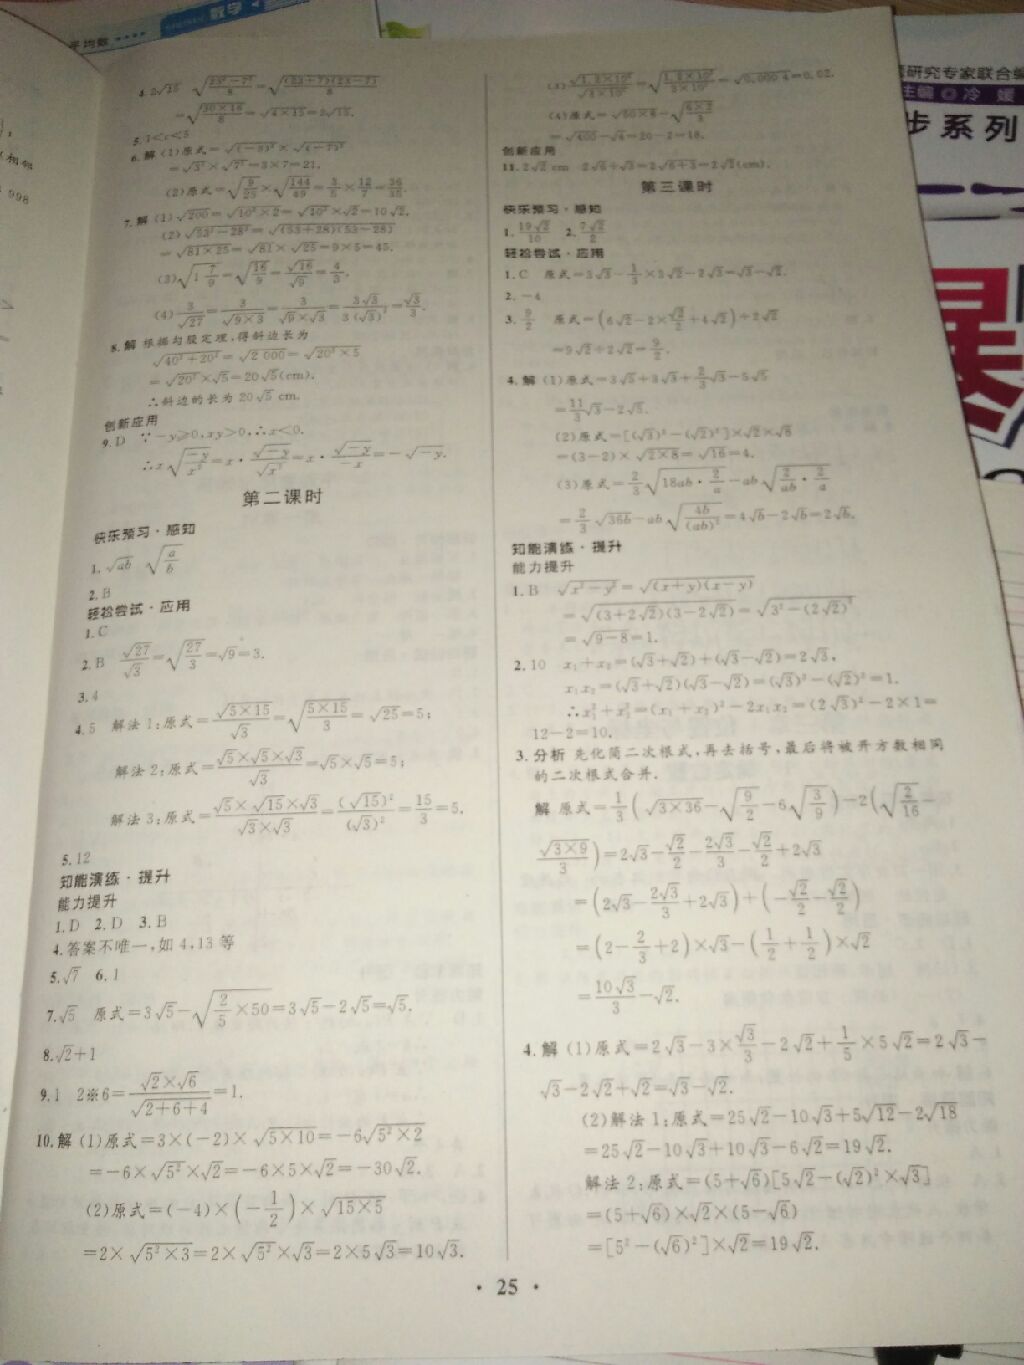 平均数
数学
研究专家联合编
主编◎冷 媛
步系列
998
4.2√15 √((23²-7²)/8)=√((23+7)(23-7)/8)
=√(30×16/8)=√(4×15)=2√15.
5.1<c<5
6.解 (1)原式=√((-3)²)×√((-7)²)
=√3²×√7²=3×7=21.
(2)原式=√(9/25)×√(144/49)=3/5×12/7=36/35.
7.解 (1)√200=√(10²×2)=√10²×√2=10√2.
(2)√(53²-28²)=√((53+28)(53-28))
=√(81×25)=√81×√25=9×5=45.
(3)√(1 7/9)=√(16/9)=√16/√9=4/3.
(4)3/√27=3/√(9×3)=3/(√9×√3)=3√3/(3(√3)²)=√3/3.
8.解 根据勾股定理,得斜边长为
√(40²+20²)=√2 000=√(20²×5)
=√20²×√5=20√5(cm).
∴斜边的长为20√5 cm.
创新应用
9.D ∵-y≥0,xy>0,∴x<0.
∴x√(-y/x²)=x·√-y/√x²=x·√-y/-x=-√-y.
第二课时
快乐预习·感知
1.√ab √(a/b)
2.B
轻松尝试·应用
1.C
2.B √27/√3=√(27/3)=√9=3.
3.4
4.5 解法1:原式=√(5×15)/√3=√(5×15/3)=√25=5;
解法2:原式=(√5×√5×√3)/√3=√5×√5=5;
解法3:原式=(√5×√15×√3)/(√3×√3)=(√15)²/(√3)²=15/3=5.
5.12
知能演练·提升
能力提升
1.D 2.D 3.B
4.答案不唯一,如4,13等
5.√7 6.1
7.√5 原式=3√5-√(2/5×50)=3√5-2√5=√5.
8.√2+1
9.1 2※6=(√2×√6)/√(2+6+4)=1.
10.解 (1)原式=3×(-2)×√(5×10)=-6√(5²×2)
=-6×√5²×√2=-6×5×√2=-30√2.
(2)原式=(-4)×(-1/2)×√(15×5)
=2×√(5²×3)=2×√5²×√3=2×5√3=10√3.
=√0.000 4=0.02.
(4)原式=√(50×8)-√(6×2/3)
=√400-√4=20-2=18.
创新应用
11.2√2 cm 2√6÷√3=2√(6÷3)=2√2(cm).
第三课时
快乐预习·感知
1.19√2/10 2.7√2/2
轻松尝试·应用
1.C 原式=3√3-1/3×3√2-2√3=√3-√2.
2.-4
3.9/2 原式=(6√2-2×√2/2+4√2)÷2√2
=9√2÷2√2=9/2.
4.解 (1)原式=3√5+3√3+2/3√3-5√5
=11/3√3-2√5.
(2)原式=[(√3)²-(√2)²]×√2×√8
=(3-2)×√(2×8)=√16=4.
(3)原式=2/3√(18ab·2/a)-ab√(2/ab·2/a)
=2/3√36b-ab√(4b/(ab)²)=4√b-2√b=2√b.
知能演练·提升
能力提升
1.B √(x²-y²)=√((x+y)(x-y))
=√((3+2√2)(3-2√2))=√(3²-(2√2)²)
=√(9-8)=1.
2.10 x₁+x₂=(√3+√2)+(√3-√2)=2√3,
x₁x₂=(√3+√2)(√3-√2)=(√3)²-(√2)²=1.
∴x₁²+x₂²=(x₁+x₂)²-2x₁x₂=(2√3)²-2×1=
12-2=10.
3.分析 先化简二次根式,再去括号,最后将被开方数相同
的二次根式合并.
解 原式=1/3(√(3×36)-√(9/2)-6√(3/9))-2(√(2/16)-
√(3×9)/3)=2√3-√2/2-2√3/3-√2/2+2√3
=(2√3-2√3/3+2√3)+(-√2/2-√2/2)
=(2-2/3+2)×√3-(1/2+1/2)×√2
=10√3/3-√2.
4.解 (1)原式=2√3-3×√3/3-2√2+1/5×5√2=2√3-
√3-2√2+√2=√3-√2.
(2)解法1:原式=25√2-10√3+5√12-2√18
=25√2-10√3+10√3-6√2=19√2.
解法2:原式=(5+√6)[5√2-(√2)²×√3]
=(5+√6)×√2×(5-√6)
=[5²-(√6)²]×√2=19√2.
· 25 ·